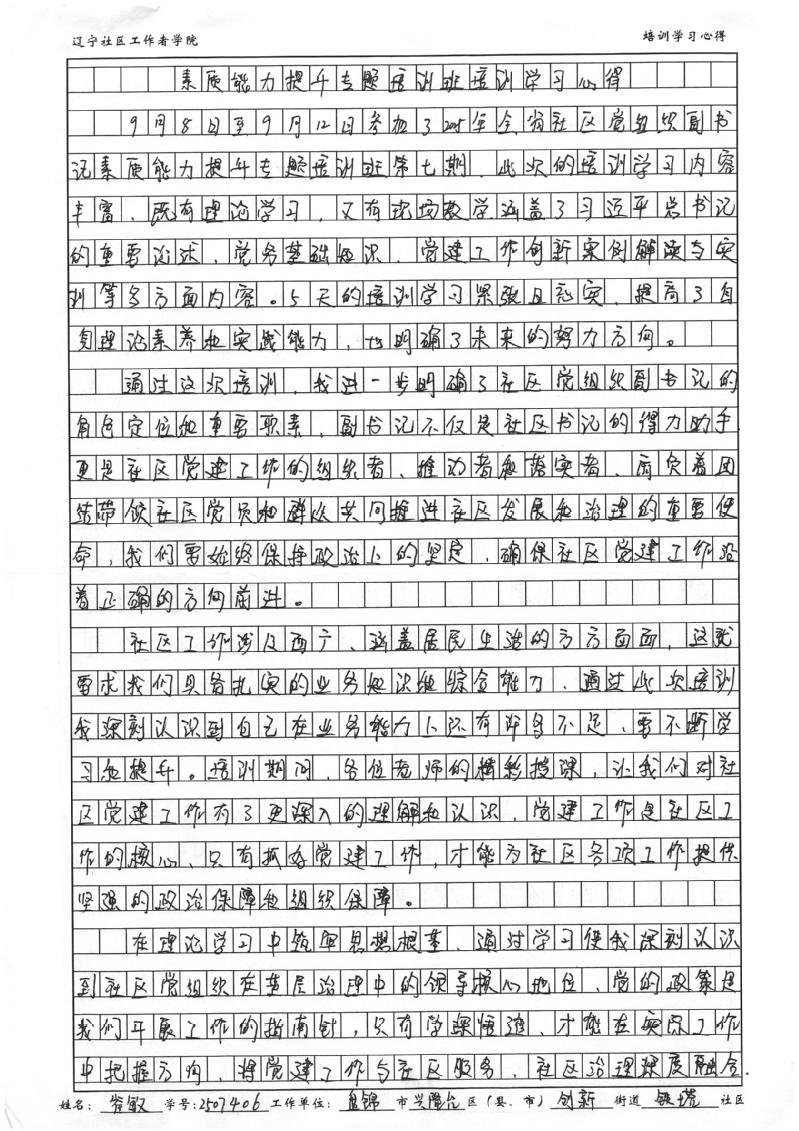 辽宁社区工作者学院 培训学习心得
素质能力提升专题培训班培训学习心得
9月8日至9月12日参加了2025年全省社区党组织副书
记素质能力提升专题培训班第七期，此次的培训学习内容
丰富、既有理论学习，又有现场教学涵盖了习近平总书记
的重要论述、党务基础知识、党建工作创新案例解读与实
训等多方面内容。5天的培训学习紧张且充实，提高了自
身理论素养和实践能力，也明确了未来的努力方向。
通过这次培训，我进一步明确了社区党组织副书记的
角色定位和重要职素、副书记不仅是社区书记的得力助手，
更是社区党建工作的组织者、推动者和落实者、肩负着团
结带领社区党员和群众共同推进社区发展和治理的重要使
命，我们要始终保持政治上的坚定，确保社区党建工作沿
着正确的方向前进。
社区工作涉及面广、涵盖居民生活的方方面面，这就
要求我们具备扎实的业务知识和综合能力、通过此次培训
我深刻认识到自己在业务能力上还有许多不足、要不断学
习和提升。培训期间，各位老师的精彩授课，让我们对社
区党建工作有了更深入的理解和认识，党建工作是社区工
作的核心，只有抓好党建工作，才能为社区各项工作提供
坚强的政治保障和组织保障。
在理论学习中筑牢思想根基、通过学习使我深刻认识
到社区党组织在基层治理中的领导核心地位，党的政策是
我们开展工作的指南针，只有学深悟透，才能在实际工作
中把握方向，将党建工作与社区服务、社区治理深度融合.
姓名：岑敏 学号：2507406 工作单位：盘锦 市 兴隆台 区（县、市） 创新 街道 铁塔 社区